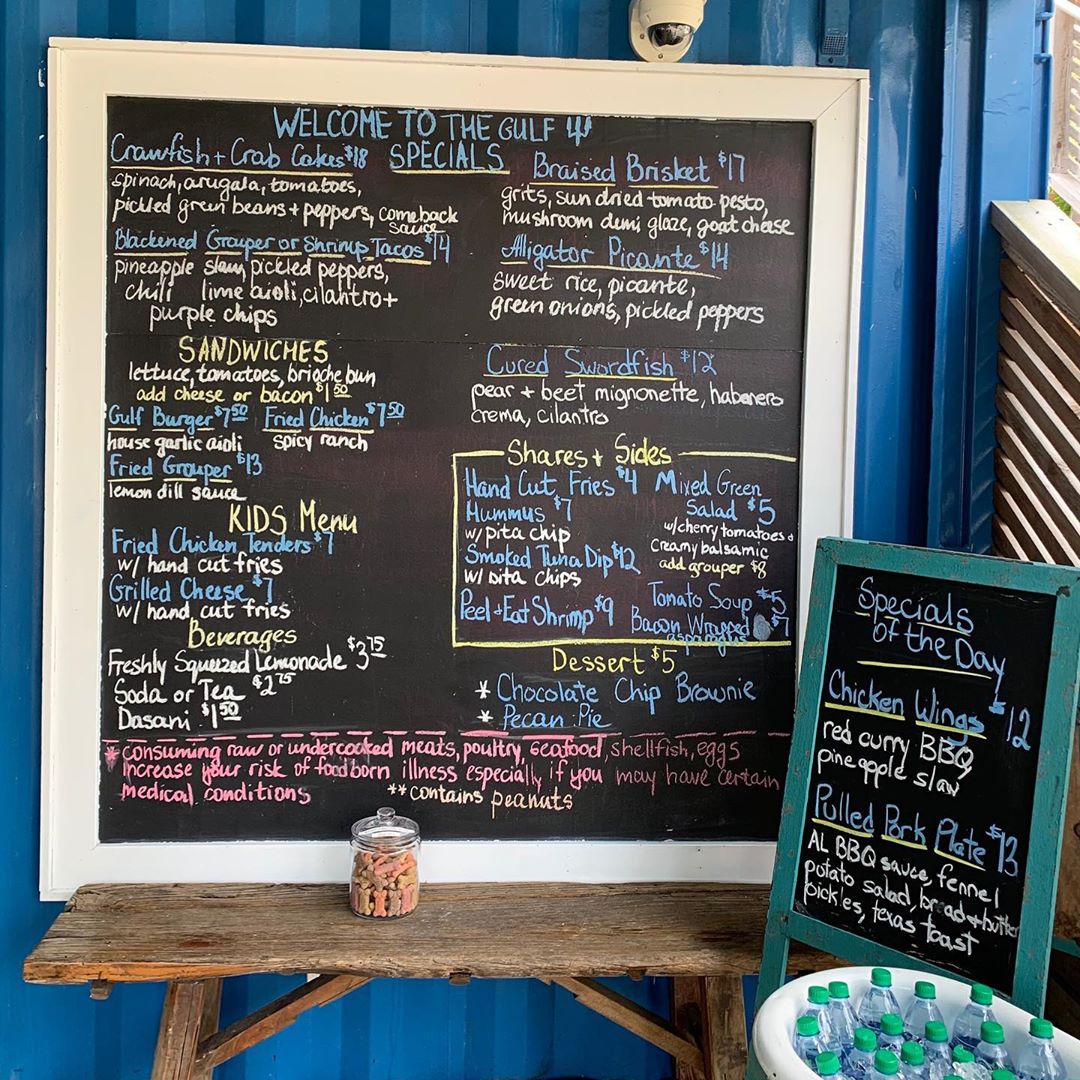 WELCOME TO THE GULF
SPECIALS
Crawfish + Crab Cakes $18
spinach, arugala, tomatoes,
pickled green beans + peppers, comeback
sauce
Blackened Grouper or Shrimp Tacos $14
pineapple slaw, pickled peppers,
chili lime aioli, cilantro +
purple chips
Braised Brisket $17
grits, sun dried tomato pesto,
mushroom demi glaze, goat cheese
Alligator Picante $14
sweet rice, picante,
green onions, pickled peppers
Cured Swordfish $12
pear + beet mignonette, habanero
crema, cilantro
SANDWICHES
lettuce, tomatoes, brioche bun
add cheese or bacon $1 50
Gulf Burger $7 50 Fried Chicken $7 50
house garlic aioli spicy ranch
Fried Grouper $13
lemon dill sauce
KIDS Menu
Fried Chicken Tenders $7
w/ hand cut fries
Grilled Cheese $7
w/ hand cut fries
Beverages
Freshly Squeezed Lemonade $3 75
Soda or Tea $2 75
Dasani $1 50
Shares + Sides
Hand Cut Fries $4
Hummus $7
w/ pita chip
Smoked Tuna Dip $12
w/ pita chips
Peel + Eat Shrimp $9
Mixed Green
Salad $5
w/ cherry tomatoes +
creamy balsamic
add grouper $8
Tomato Soup $5
Bacon Wrapped $7
asparagus
Dessert $5
* Chocolate Chip Brownie
* Pecan Pie
* consuming raw or undercooked meats, poultry, seafood, shellfish, eggs
increase your risk of foodborn illness especially if you may have certain
medical conditions **contains peanuts
Specials
of the Day
Chicken Wings $12
red curry BBQ
pineapple slaw
Pulled Pork Plate $13
AL BBQ sauce, fennel
potato salad, bread + butter
pickles, texas toast